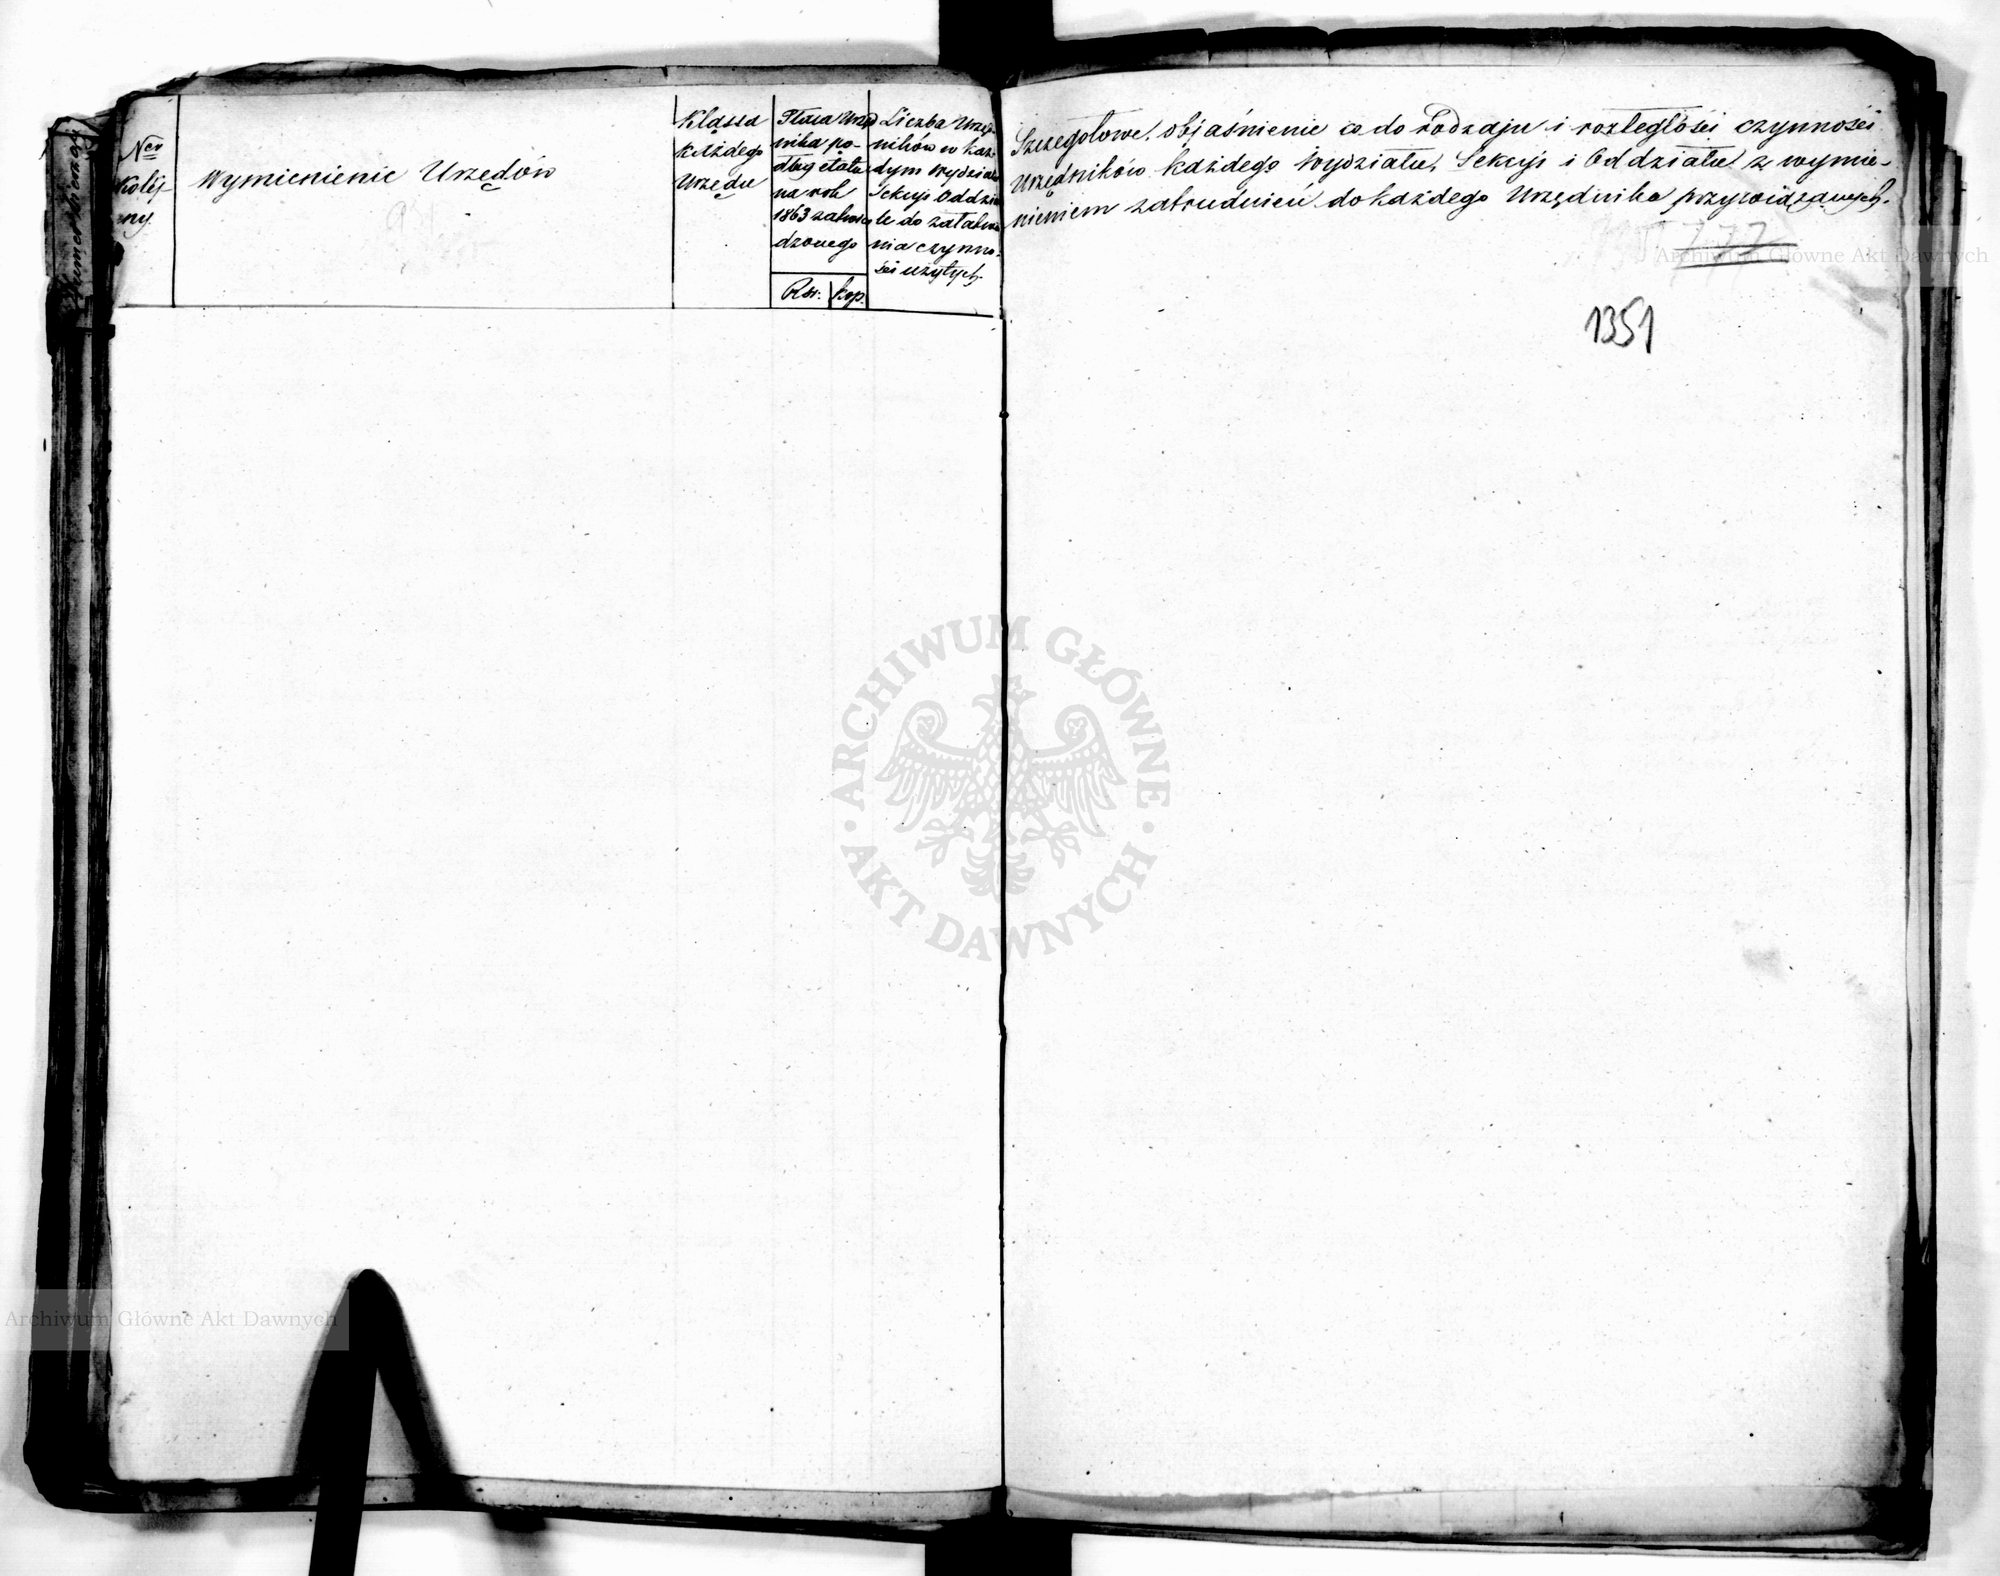 Ner
Kolej-
ny.
Wymienienie Urzędów
Klassa
każdego
Urzędu
Płaca Urzę
nika po-
dług etatu
na rok
1863 zatwier
dzonego
Rsr. kop.
Liczba Urzęd-
ników w każ-
dym Wydziale
Sekcyi Oddzia
le do załatwie
nia czynno-
ści użytych.
Szczegółowe objaśnienie co do rodzaju i rozległości czynności
Urzędników każdego Wydziału, Sekcyi i Oddziału z wymie-
nieniem zatrudnień do każdego Urzędnika przywiązanych.
777
1351
Archiwum Główne Akt Dawnych
ARCHIWUM GŁÓWNE
AKT DAWNYCH
Archiwum Główne Akt Dawnych